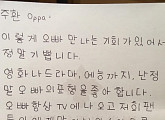 주환 Oppa.
이렇게 오빠 만나는 기회가 있어서
정말 기쁩니다.
영화나 드라마, 예능까지, 난 정
말 오빠의 표형을 좋아합니다.
오빠 항상 TV에 나오고 저희 팬